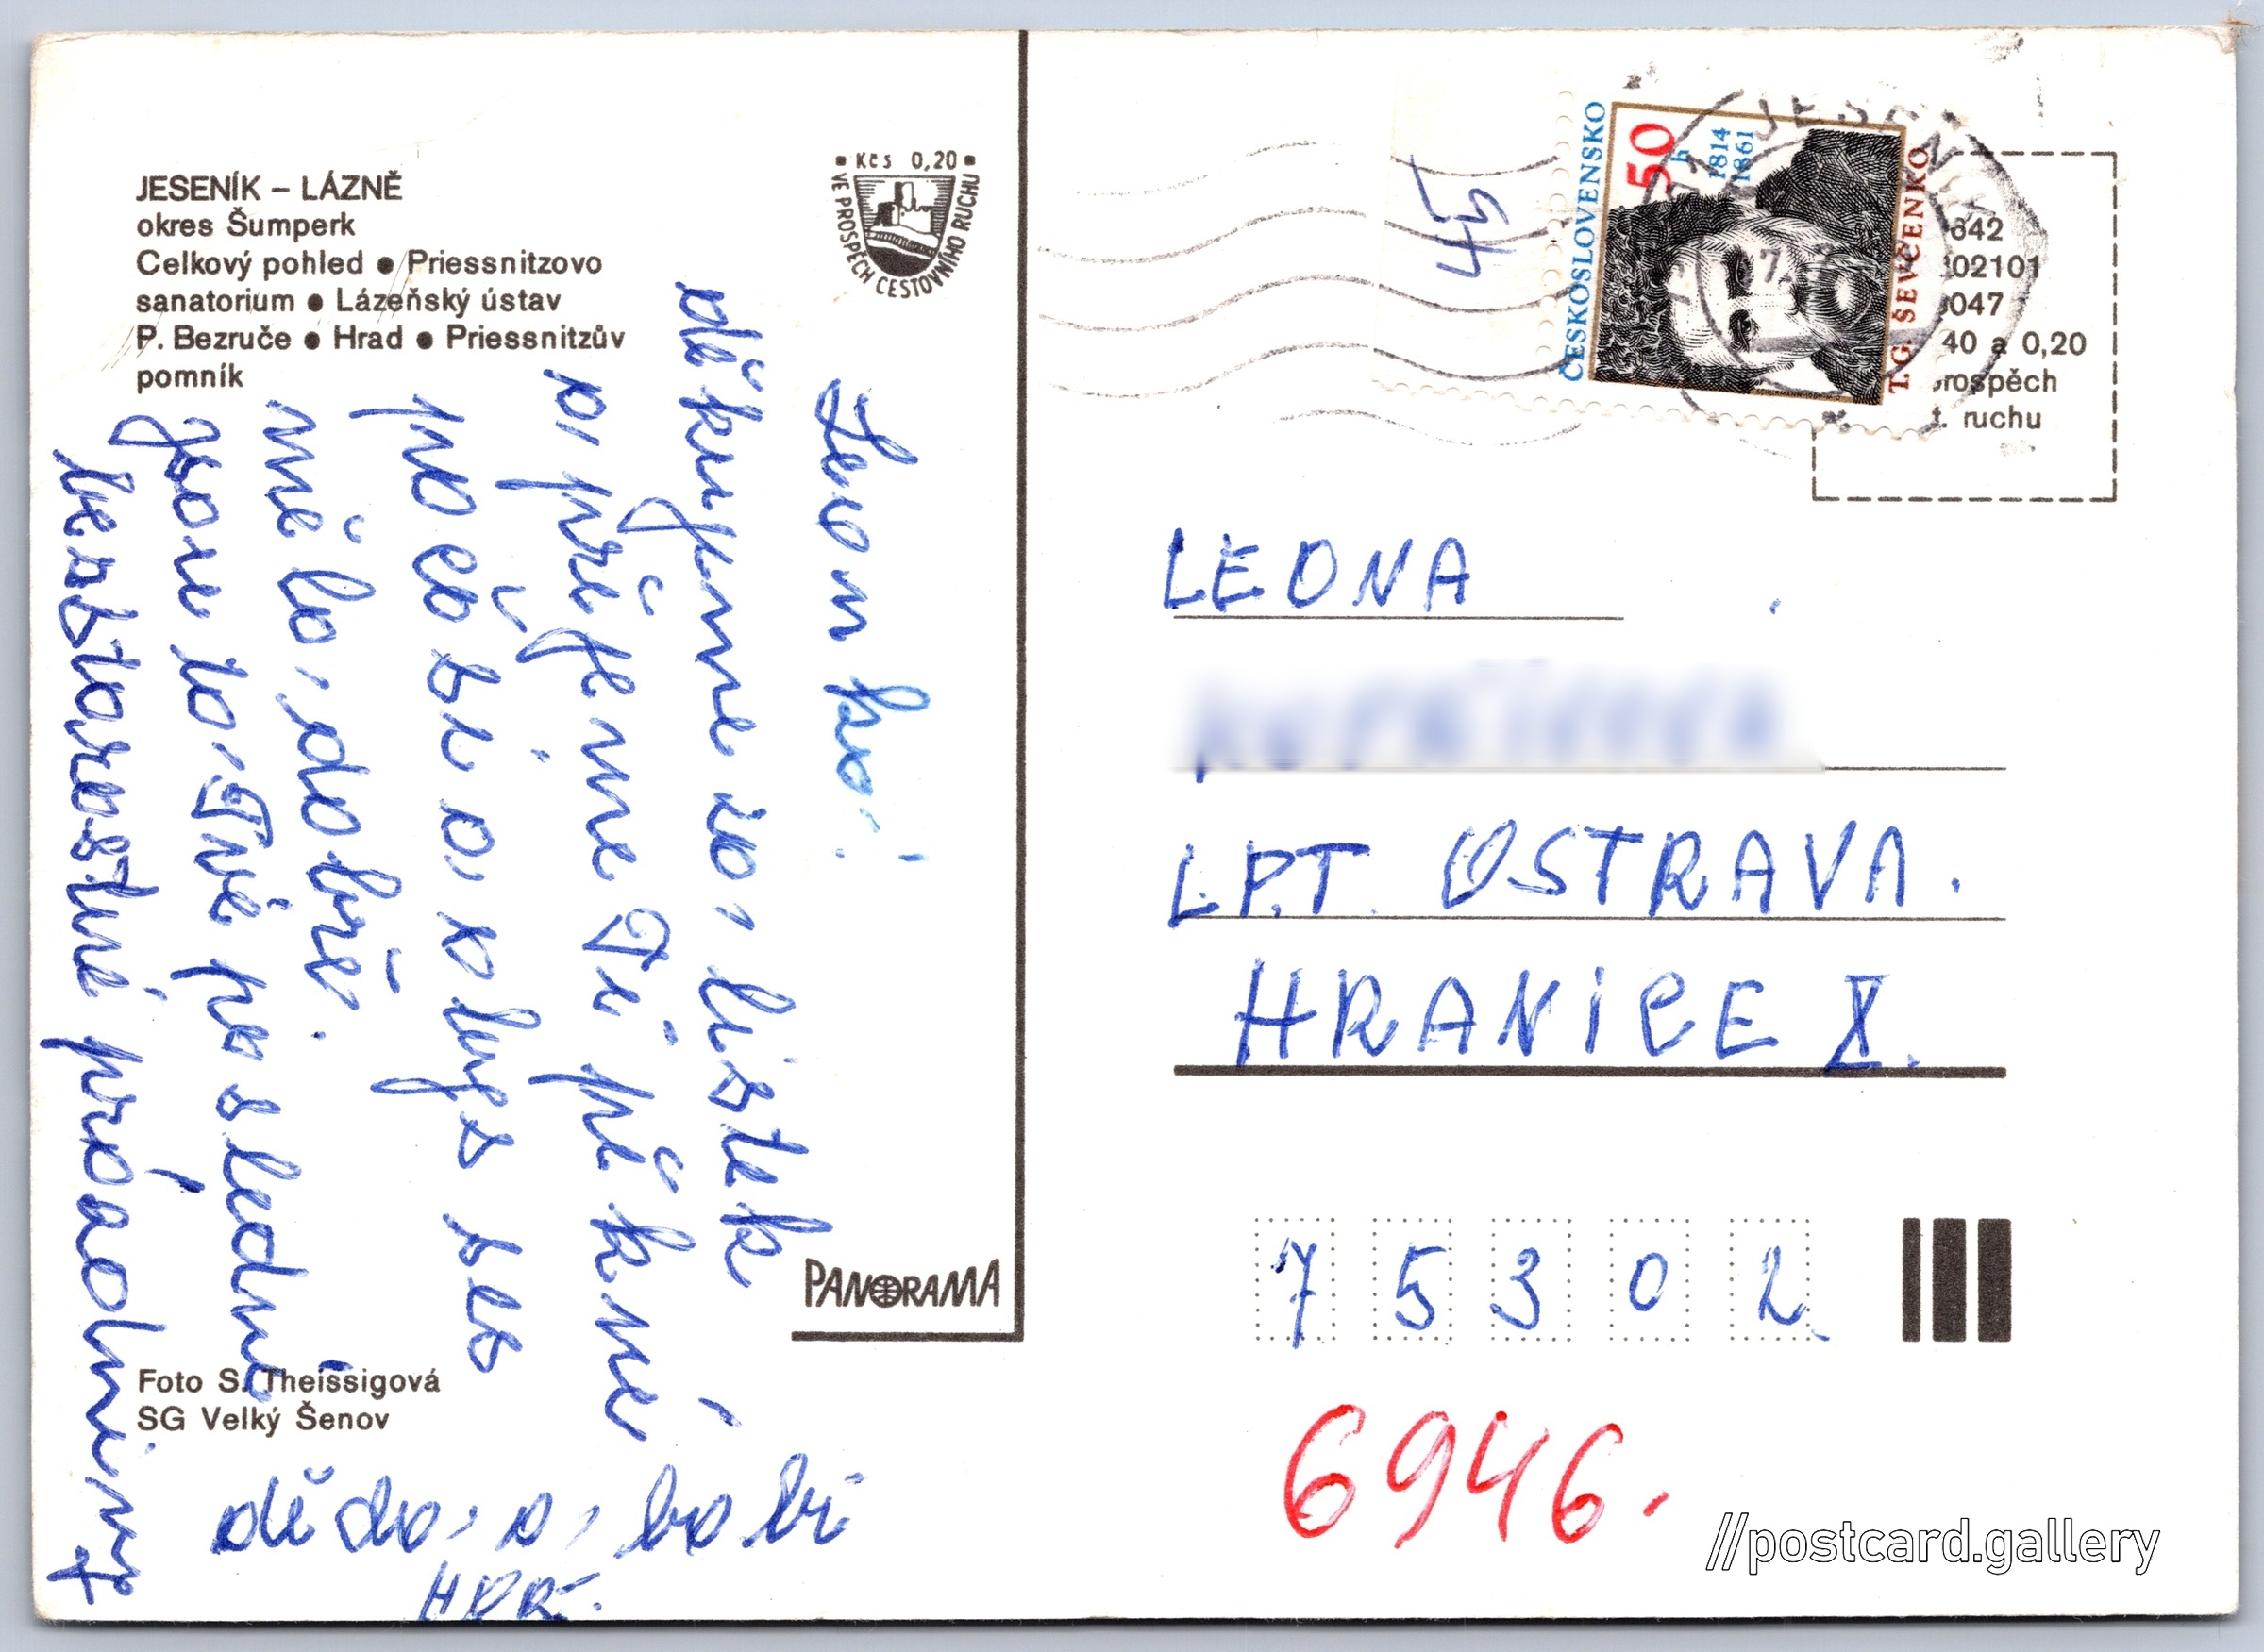 JESENÍK – LÁZNĚ
okres Šumperk
Celkový pohled ● Priessnitzovo
sanatorium ● Lázeňský ústav
P. Bezruče ● Hrad ● Priessnitzův
pomník
▪ Kčs 0,20 ▪
VE PROSPĚCH CESTOVNÍHO RUCHU
děkujeme za lístek
a přejeme Ti pěkné
počasí a abys se
měla dobře.
jsou to Tvé poslední
bezstarostné prázdniny
děda a babi
PANORAMA
Foto S. Theissigová
SG Velký Šenov
ČESKOSLOVENSKO
50 h
1814
1861
T. G. ŠEVČENKO
JESENÍK
642
02101
047
40 a 0,20
rospěch
t. ruchu
LEONA
L.P.T. OSTRAVA.
HRANICE X.
7 5 3 0 2
6946.
//postcard.gallery